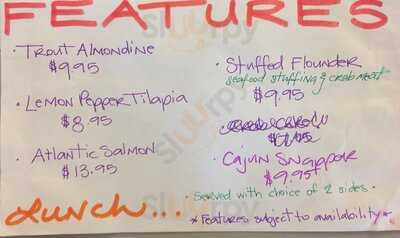 FEATURES
· Trout Almondine
$9.95
· Lemon Pepper Tilapia
$8.95
· Atlantic Salmon
$13.95
· Stuffed Flounder
seafood stuffing & crab meat
$9.95
· Cajun Snapper
$9.95
Served with choice of 2 sides.
Lunch...
*Features subject to availability*